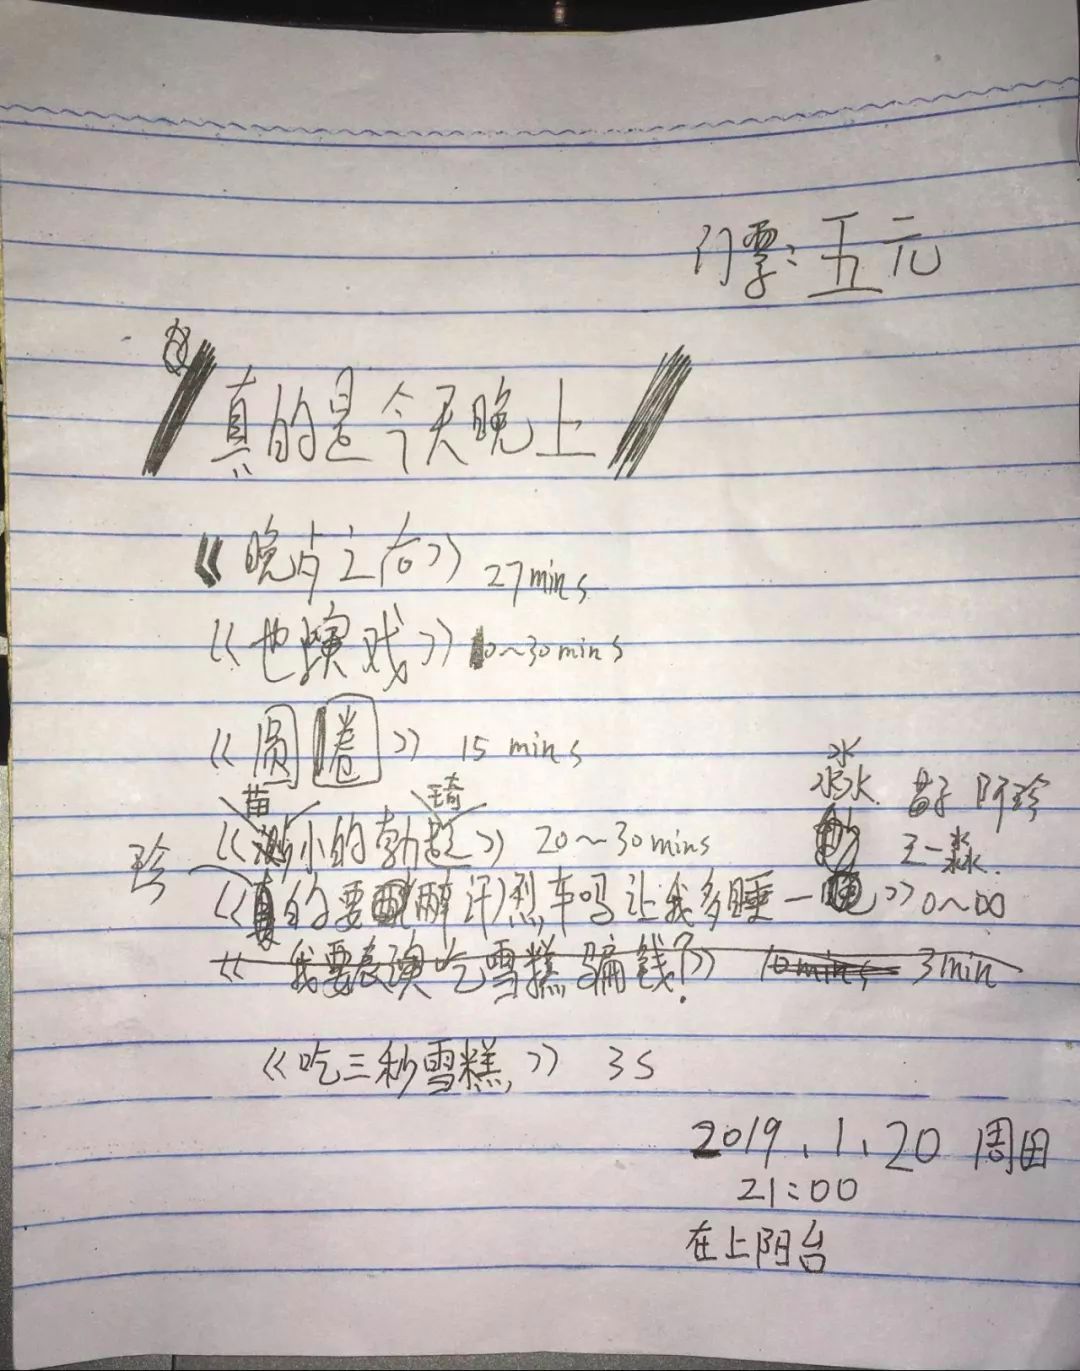 门票：五元
真的是今天晚上
《晚点之向》 27mins
《也演戏》 10~30mins
《圆圈》 15 mins
苗 琦
淼 苗子 阿珍
《渺小的勃起》 20~30mins
珍 王一淼.
《真的要醉汗烈车吗让我多睡一晚》 0~∞
《我要表演吃雪糕骗钱?》 10mins 3min
《吃三秒雪糕》 3s
2019.1.20 周日
21:00
在上阳台